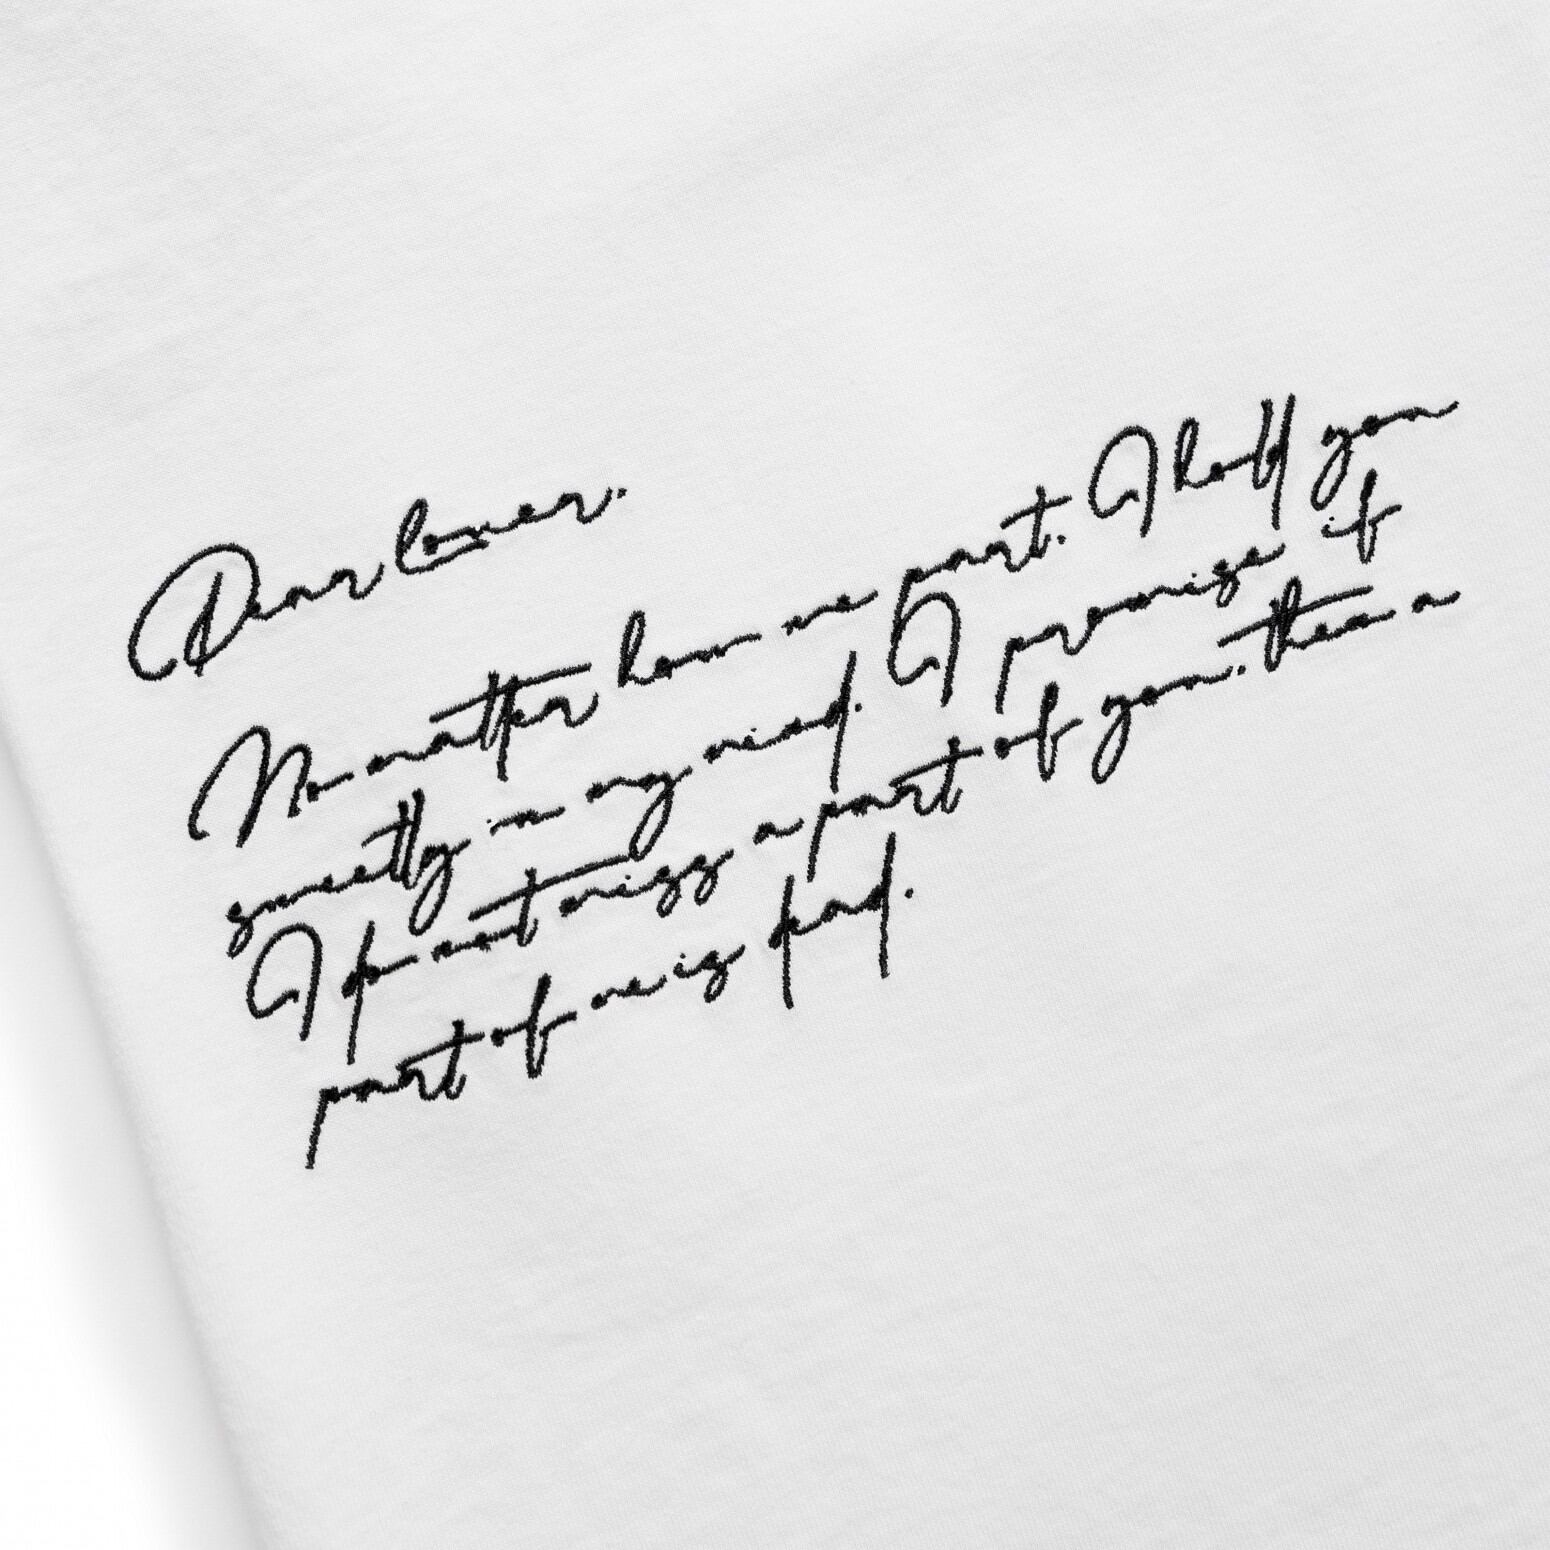 Dear lover.
No matter how we part. I hold you
sweetly in my mind. I promise if
I do not miss a part of you. then a
part of me is dead.